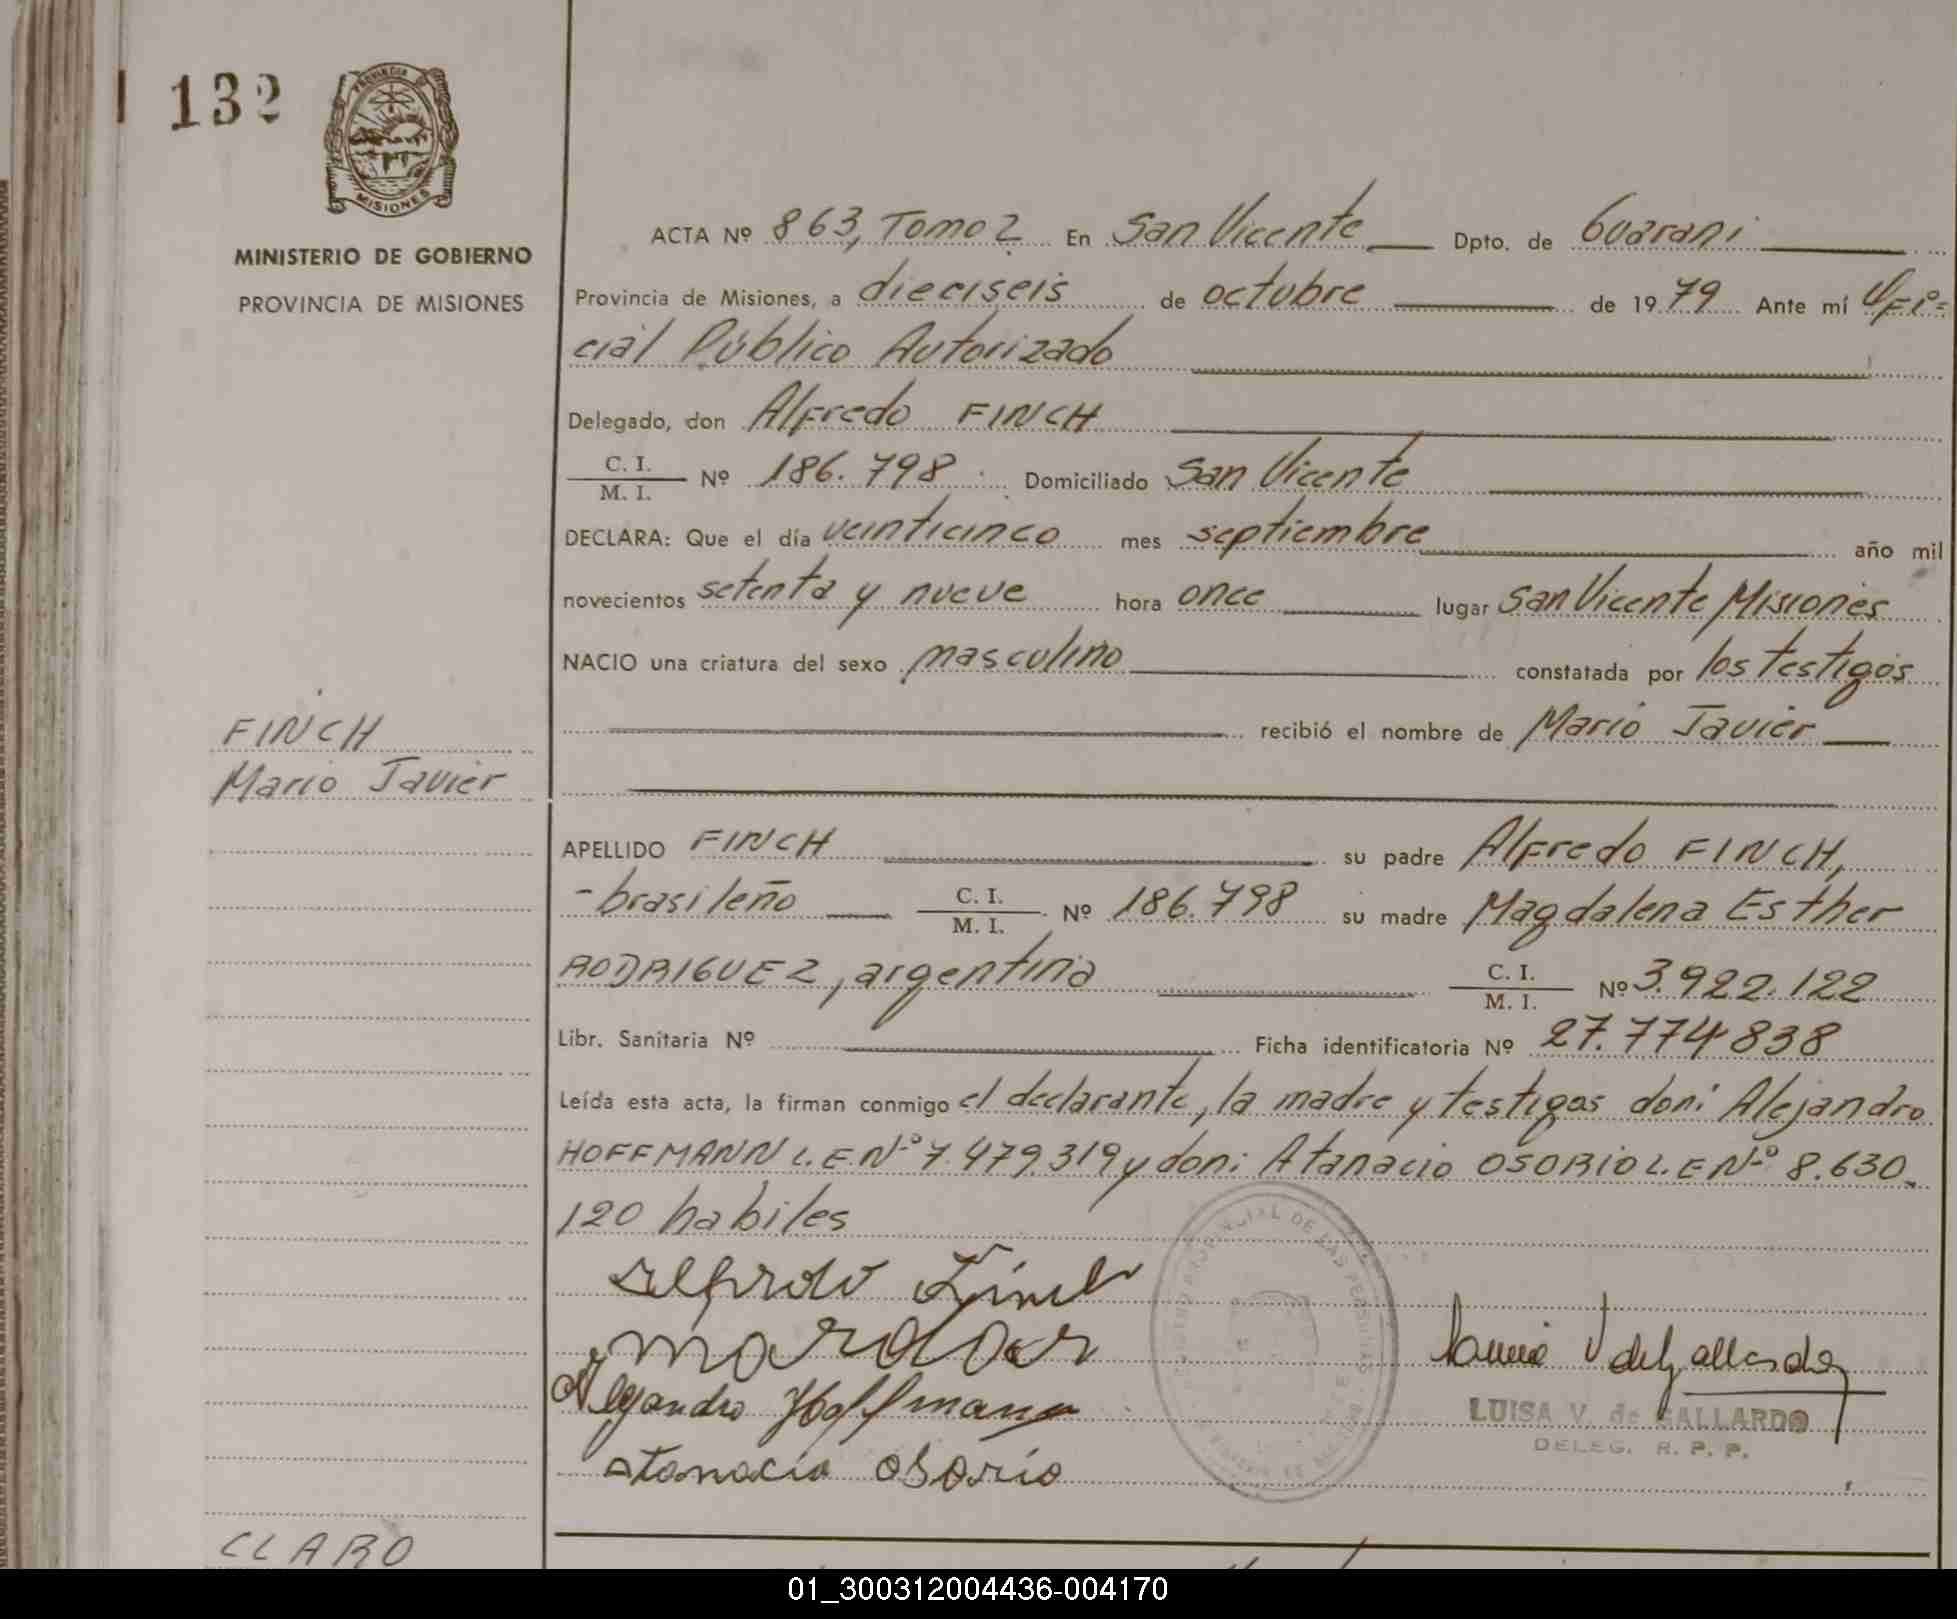 132
PROVINCIA
MISIONES
MINISTERIO DE GOBIERNO
PROVINCIA DE MISIONES
ACTA Nº 863, Tomo 2 En San Vicente Dpto. de Guarani
Provincia de Misiones, a dieciseis de octubre de 1979 Ante mí Ofi=
cial Público Autorizado
Delegado, don Alfredo FINCH
C. I.
M. I. Nº 186.798 Domiciliado San Vicente
DECLARA: Que el día veinticinco mes septiembre año mil
novecientos setenta y nueve hora once lugar San Vicente Misiones
NACIO una criatura del sexo masculino constatada por los testigos
recibió el nombre de Mario Javier
FINCH
Mario Javier
APELLIDO FINCH su padre Alfredo FINCH,
-brasileño C. I. M. I. Nº 186.798 su madre Magdalena Esther
RODRIGUEZ, argentina C. I. M. I. Nº 3.922.122
Libr. Sanitaria Nº Ficha identificatoria Nº 27.774838
Leída esta acta, la firman conmigo el declarante, la madre y testigos don: Alejandro
HOFFMANN L.E.Nº 7.479.319 y don: Atanacio OSORIO L.E Nº 8.630.
120 habiles
Alfredo Finch
Alejandro Hoffmann
atanacio osorio
LUISA V. de GALLARDO
DELEG. R. P. P.
CLARO
01_300312004436-004170